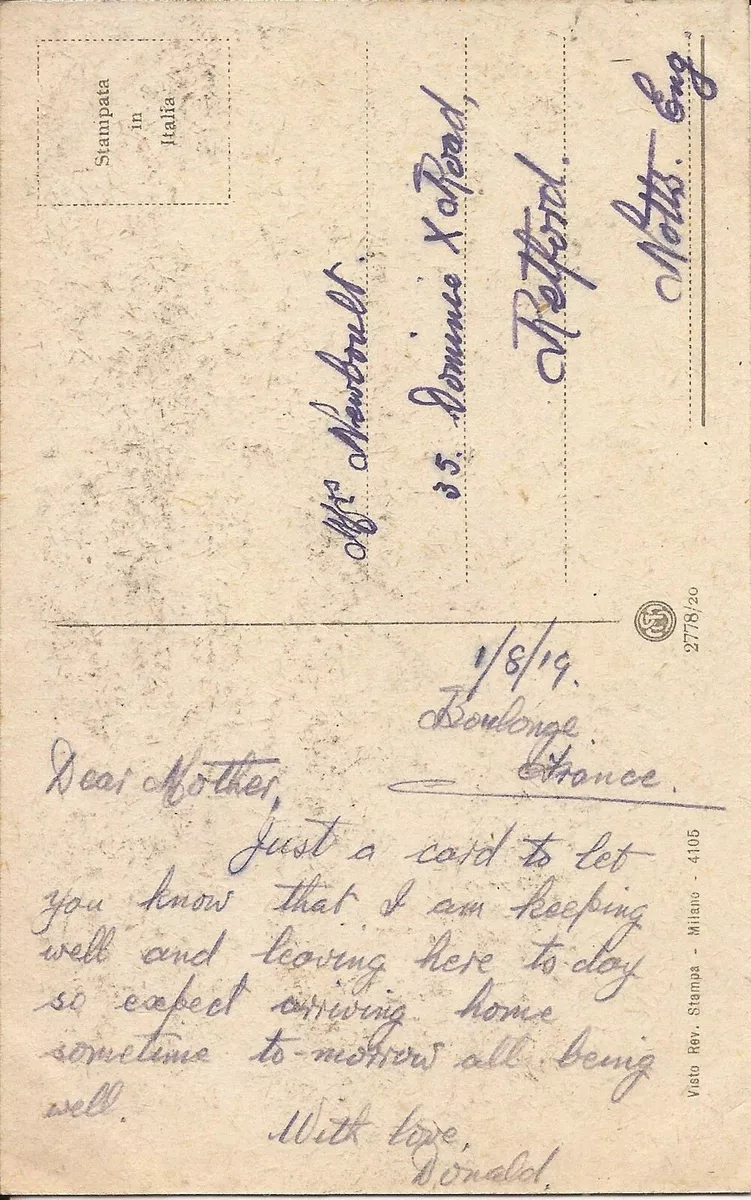 Stampata
in
Italia
Mrs Newboult.
35. Dominie X Road,
Retford.
Notts. Eng
2778/20
1/8/19.
Boulonge
France.
Dear Mother,
Just a card to let
you know that I am keeping
well and leaving here to-day
so expect arriving home
sometime to-morrow all being
well.
With love,
Donald.
Visto Rev. Stampa - Milano - 4105